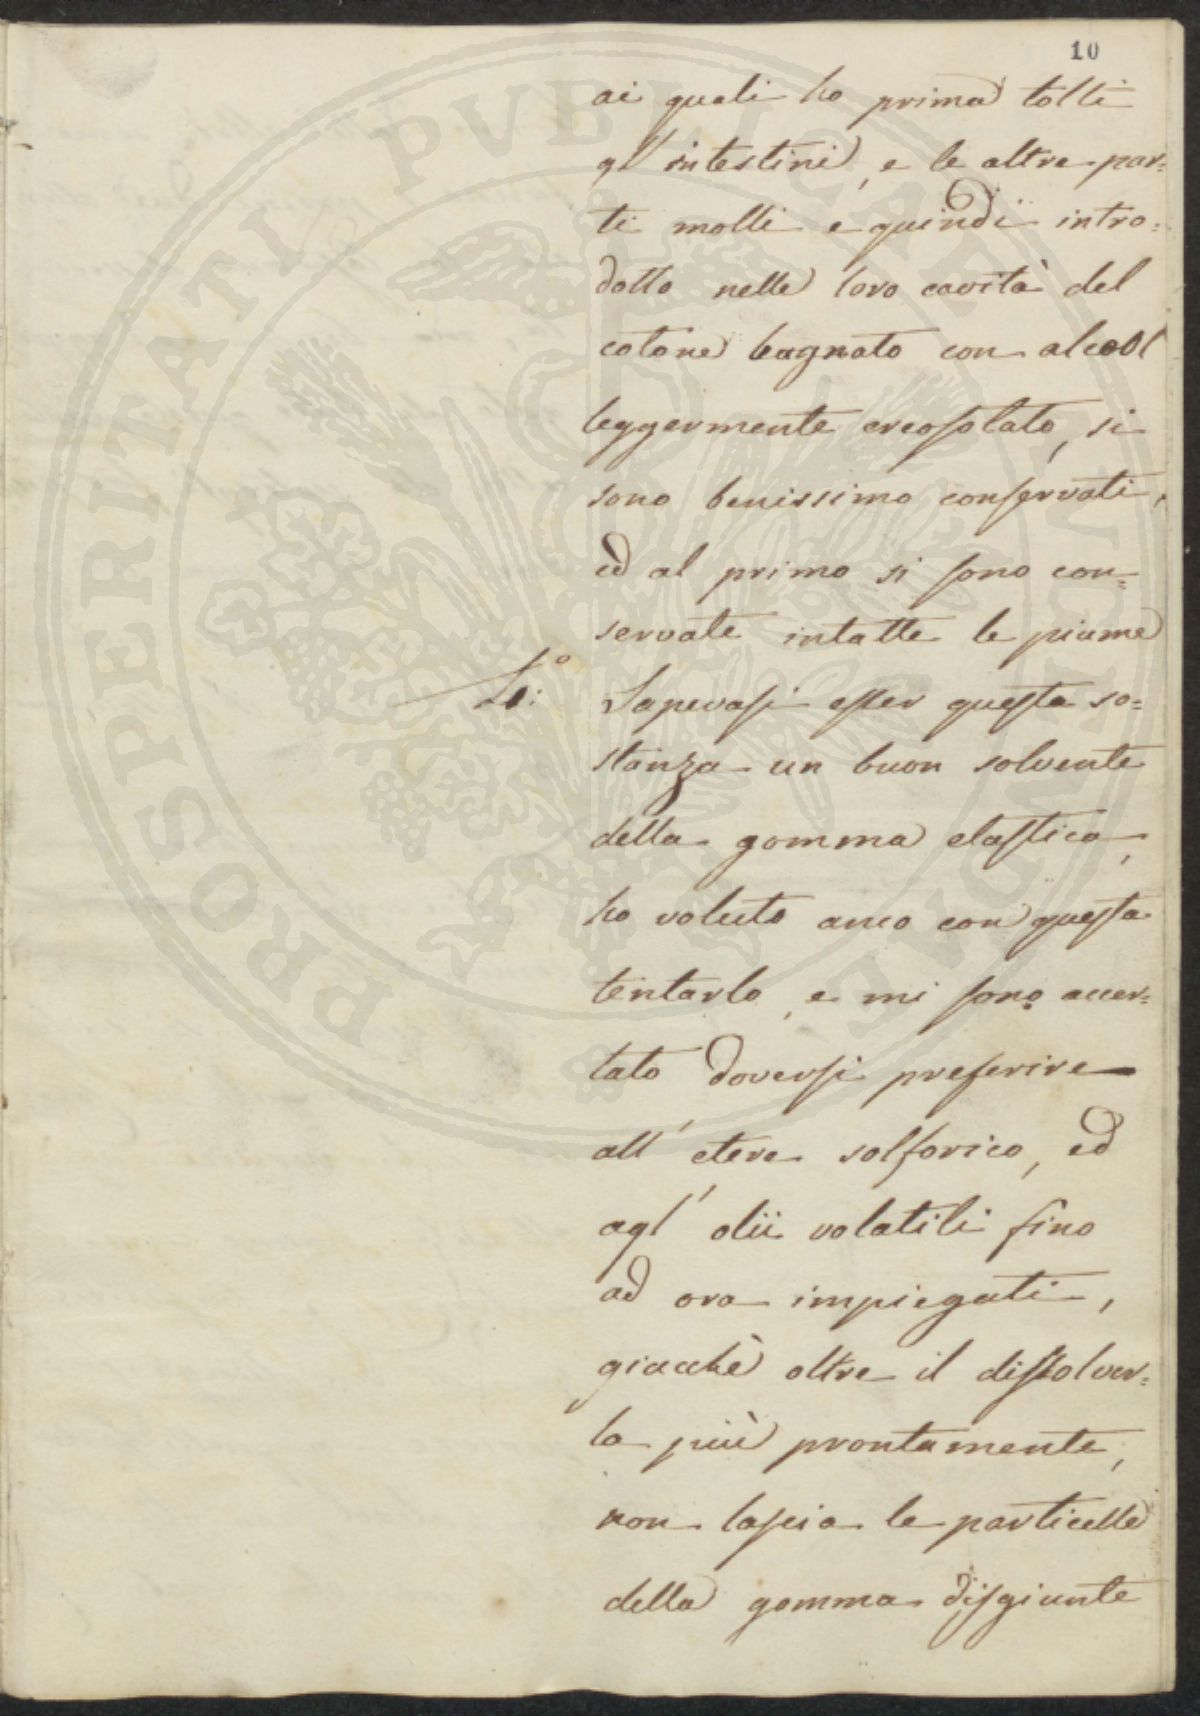 10
ai quali ho prima tolti
gl'intestini, e le altre par=
ti molli e quindi intro=
dotto nelle loro cavità del
cotone bagnato con alcool
leggermente creosotato, si
sono benissimo conservati,
ed al primo si sono con=
servate intatte le piume
Sapevasi esser questa so=
stanza un buon solvente
della gomma elastica,
ho voluto anco con questa
tentarlo, e mi sono accer=
tato doversi preferire
all'etere solforico, ed
agl'olii volatili fino
ad ora impiegati,
giacchè oltre il dissolver=
la più prontamente,
non lascia le particelle
della gomma disgiunte
PROSPERITATI PVBLICAE